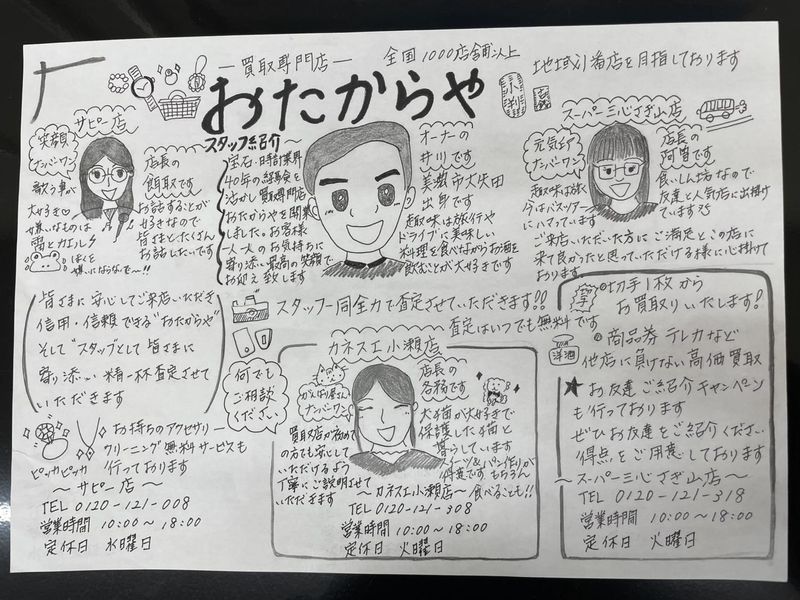 ―買取専門店―
全国1000店舗以上
地域1番店を目指しております
おたからや
小判
古銭
スタッフ紹介
サピー店
笑顔
ナンバーワン
店長の
飯取です
お話することが
好きなので
皆さまとたくさん
お話したいです
歌う事が
大好き♡
嫌いなものは
雷とカエル
ぼくを
嫌いにならないで〜!!
宝石・時計業界
40年の経験を
活かし買取専門店
おたからやを開業
しました。お客様
一人一人のお気持ちに
寄り添い最高の笑顔で
お迎え致します
オーナーの
井川です
美濃市大矢田
出身です
趣味は旅行や
ドライブに美味しい
料理を食べながらお酒を
飲むことが大好きです
スーパー三心さぎ山店
元気さ
ナンバーワン
趣味は旅
今はバスツアー
にハマっています
店長の
阿曽です
食いしん坊なので
友達と人気店に出掛け
ています
ご来店いただいた方に ご満足とこの店に
来て良かったと思っていただける様に心掛けて
おります
皆さまに安心してご来店いただき
信用・信頼できる"おたからや"
そして"スタッフ"として皆さまに
寄り添い精一杯査定させて
いただきます
スタッフ一同全力で査定させていただきます!!
査定はいつでも無料です
何でも
ご相談
ください
カネスエ小瀬店
がんばり屋さん
ナンバーワン
店長の
各務です
犬・猫が大好きで
保護した猫と
暮らしています
スイーツ&パン作りが
得意です もちろん
食べることも!!
買取店が初めて
の方でも安心して
いただけるよう
丁寧にご説明させて
いただきます
〜カネスエ小瀬店〜
TEL 0120-121-308
営業時間 10:00〜18:00
定休日 火曜日
切手1枚から
お買取りいたします!
洋酒
商品券 テレカなど
他店に負けない高価買取
★お友達ご紹介キャンペン
も行っております
ぜひお友達をご紹介ください
得点をご用意しております
〜スーパー三心さぎ山店〜
TEL 0120-121-318
営業時間 10:00〜18:00
定休日 火曜日
お持ちのアクセサリー
クリーニング無料サービスも
行っております
ピッカピッカ
〜サピー店〜
TEL 0120-121-008
営業時間 10:00〜18:00
定休日 水曜日